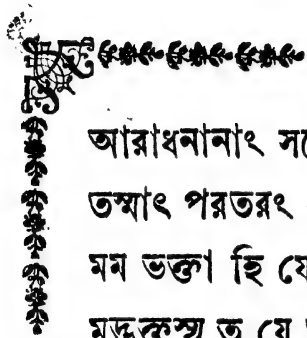 আরাধনানাং
তস্মাৎ পরতরং
মম ভক্তা হি যে
মদ্ভক্তস্য তু যে